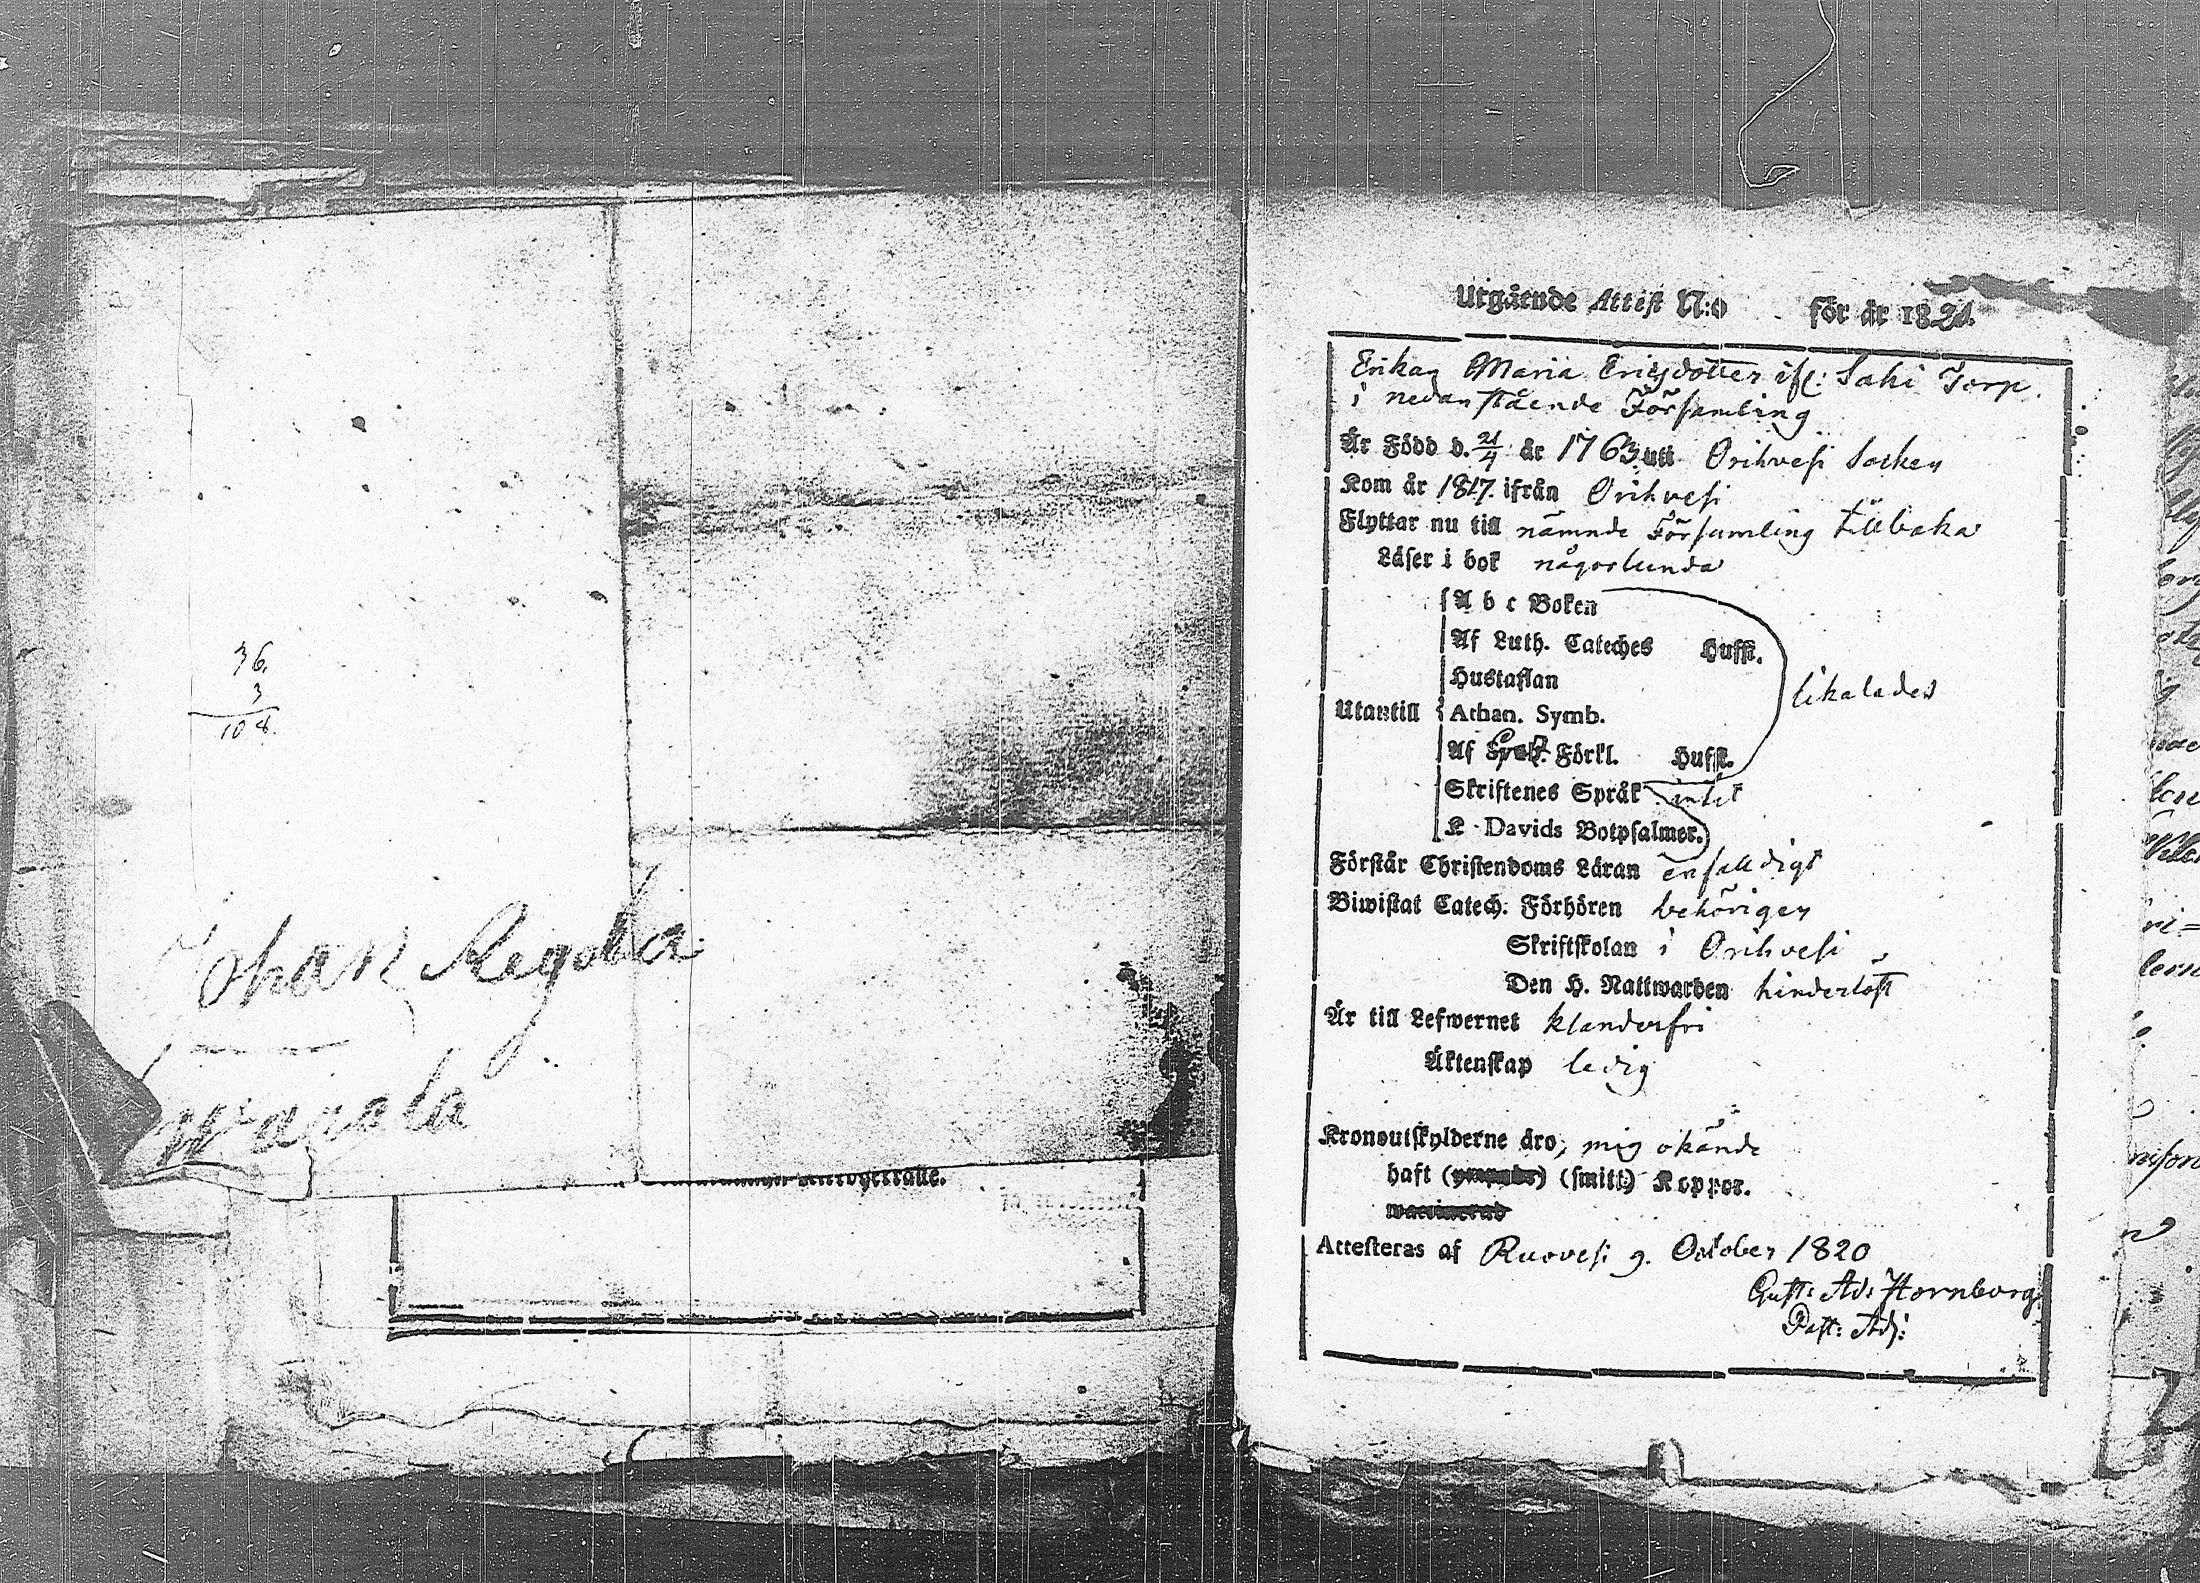 36.
3
108.
Johan
Utgående Attest N:o för år 1820.
Enkan Maria Ericsdotter ifr: Sahi Torp.
i nedanstående Församling
Är Född d. 21/4 år 1763 uti Orihvesi Socken
Kom år 1817. ifrån Orihvesi
Flyttar nu till nämnde Församling tillbaka
Läser i bok någorlunda
A b c Boken
Af Luth. Cateches Hufst.
Hustaflan
likaledes
Utantill Athan. Symb.
Af Förkl. Hufst.
Skriftenes Språk intet
K. Davids Botpsalmer.
Förstår Christendoms Läran enfalldigt
Biwistat Catech. Förhören behörigen
Skriftskolan i Orihvesi
Den H. Nattwarden hinderlöst
Är till Lefwernet klanderfri
Äktenskap ledig
Kronoutskylderne äro, mig okände
haft (smitt.) Koppor.
Attesteras af Ruovesi 9. October 1820
Gust: Ad: Hornborg
Past: Adj: